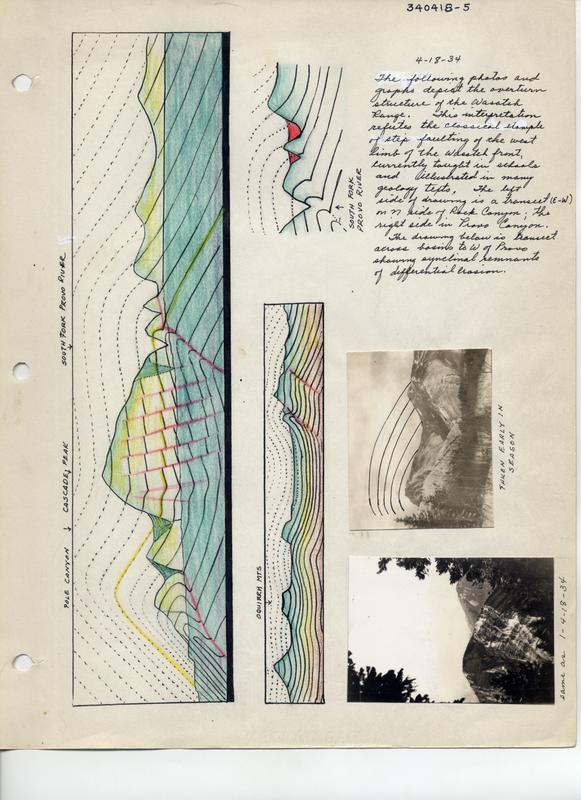 340418-5
4-18-34
The following photos and
graphs depict the overturn
structure of the Wasatch
Range. This interpretation
refutes the classical example
of step faulting of the west
limb of the Wasatch front,
currently taught in schools
and illustrated in many
geology texts. The left
side of drawing is a transect (E-W)
on N side of Rock Canyon; the
right side in Provo Canyon.
The drawing below is transect
across basins to W of Provo
showing synclinal remnants
of differential erosion.
SOUTH FORK
PROVO RIVER
SOUTH FORK PROVO RIVER
CASCADE PEAK
POLE CANYON
OQUIRRH MTS
TAKEN EARLY IN
SEASON
same as 1-4-18-34